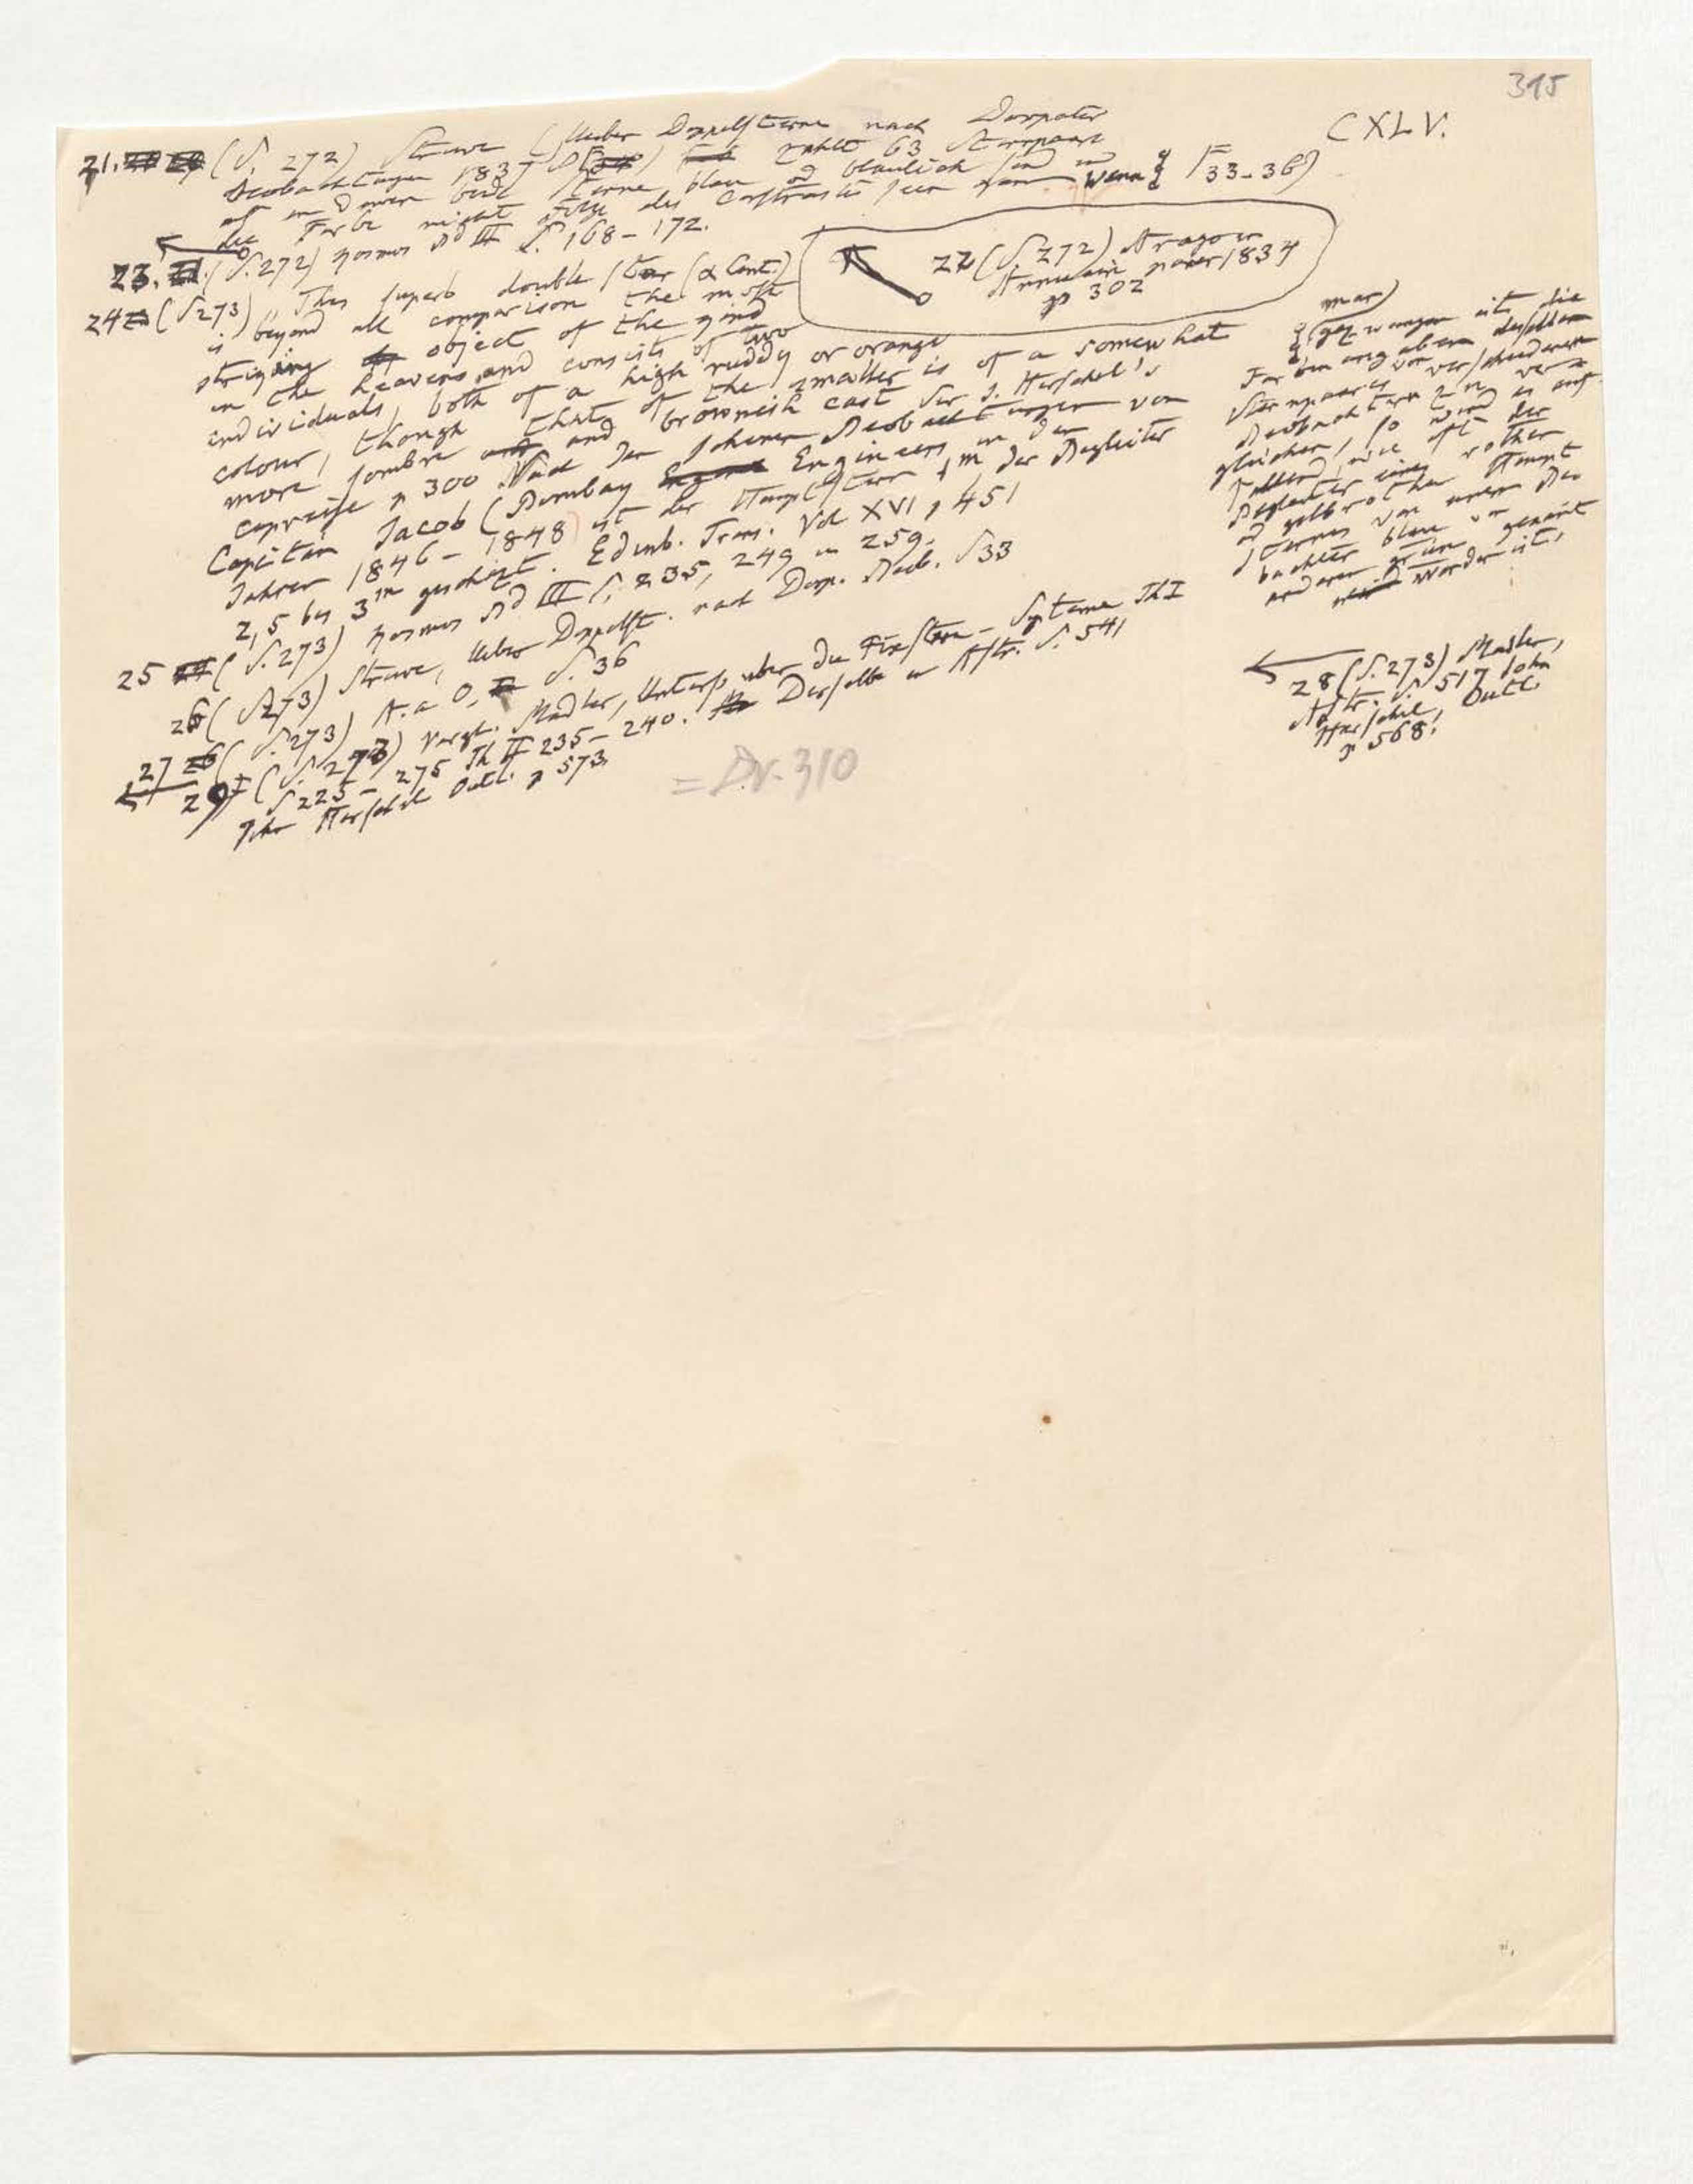 315
CXLV.
21. (S. 272) Struve (Ueber Doppelsterne nach Dorpater
Beobachtungen 1837 S zählt 63 Sternpaare
auf in denen beide Sterne blau od bläulich sind u
die Farbe nicht Folge des Contrastes sein kann Wenn
33-36)
23. (S. 272) Kosmos Bd III S. 168-172.
22 (S. 272) Arago in
Annuaire pour 1834
p 302
24 (S 273) This superb double star (α Cent.)
is beyond all comparison the most
striking object of the kind
in the heavens, and consists of two
individuals, both of a high ruddy or orange
colour, though that of the smaller is of a somewhat
more sombre and brownish cast Sir J. Herschel's
Capreise p 300 Nach den schönen Beobachtungen von
Capitän Jacob (Bombay Engineers in den
Jahren 1846-1848) ist der Hauptstern 1m der Begleiter
2,5 bis 3m geschäzt. Edinb. Trans. Vol XVI p 451
25 (S. 273) Kosmos Bd III S. 235, 249 u 259.
26 (S 273) Struve, Ueber Doppelst. nach Dorp. Beob. S 33
27 (S. 273) A. a O. S. 36
29 (S. 273) Vergl. Mädler, Unters. über die Fixstern-Systeme Th I
S 225-275 Th II 235-240. Derselbe in Astr. S. 541
John Herschel Outl. p 573.
man)
gezwungen ist die
Farbenangaben desselben
Sternpaares von verschiedenen
Beobachtern zu ver
gleichen, so wird es auf
fallend, wie oft der
Begleiter eines rothen
od gelbrothen Haupt
sternes von einem Beo
bachter blau von
anderen grün genant
worden ist,
28 (S. 273) Mädler,
Astr. S. 517 John
Herschel, Outl.
p 568.
= Dr. 310